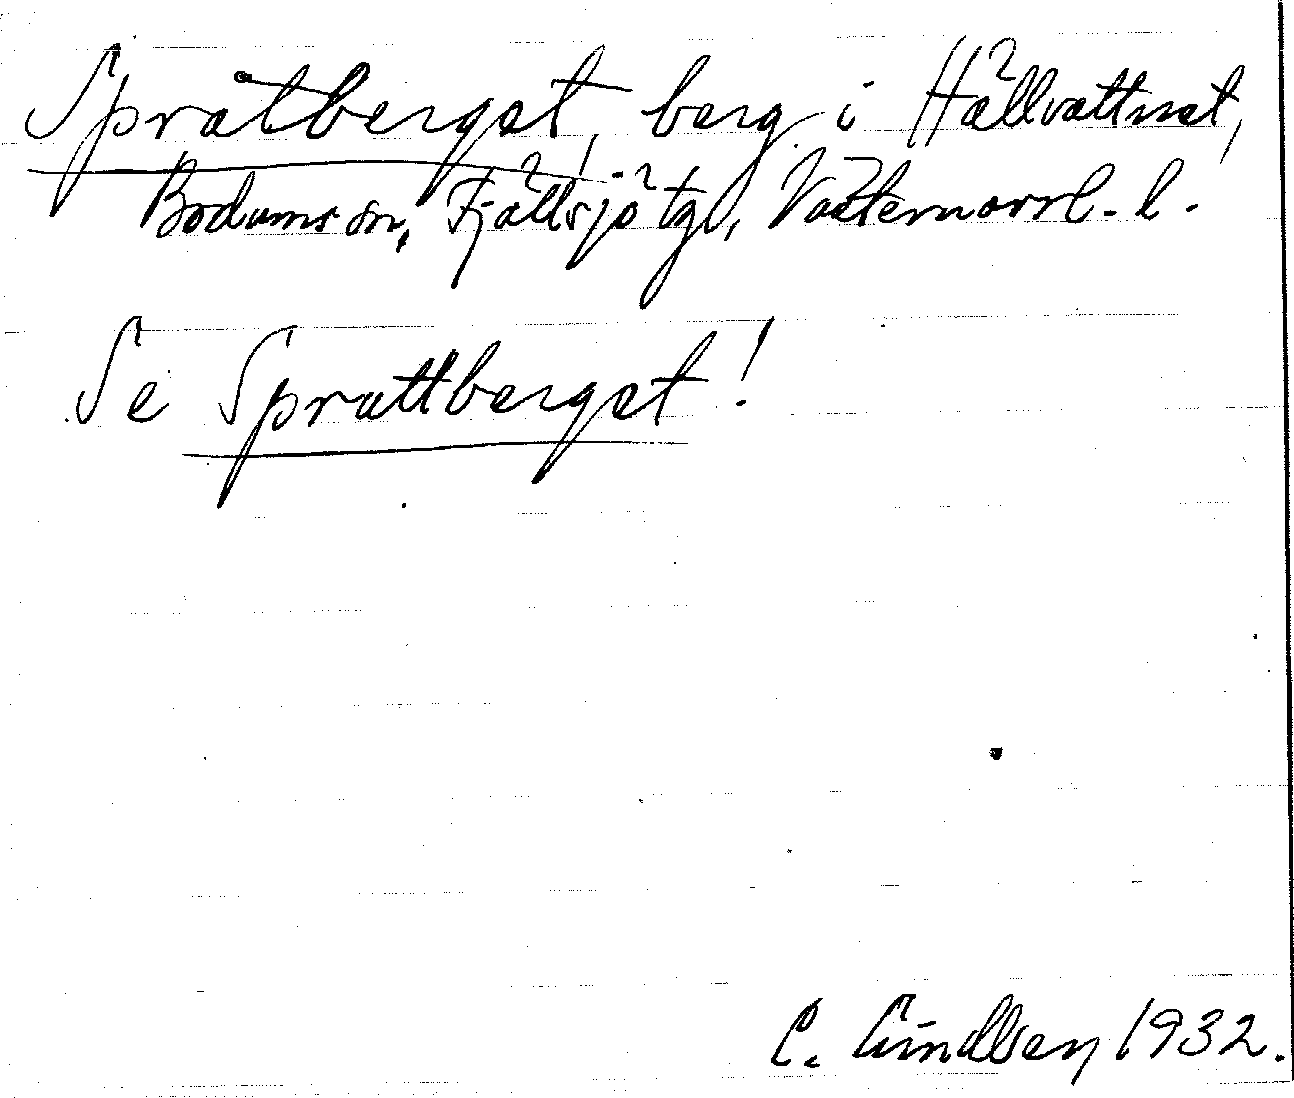 Språtberget, berg i Hällvattnet,
Bodums sn, Fjällsjö tgl, Västernorrl. l.
Se Sprattberget!
C. Lindberg 1932.